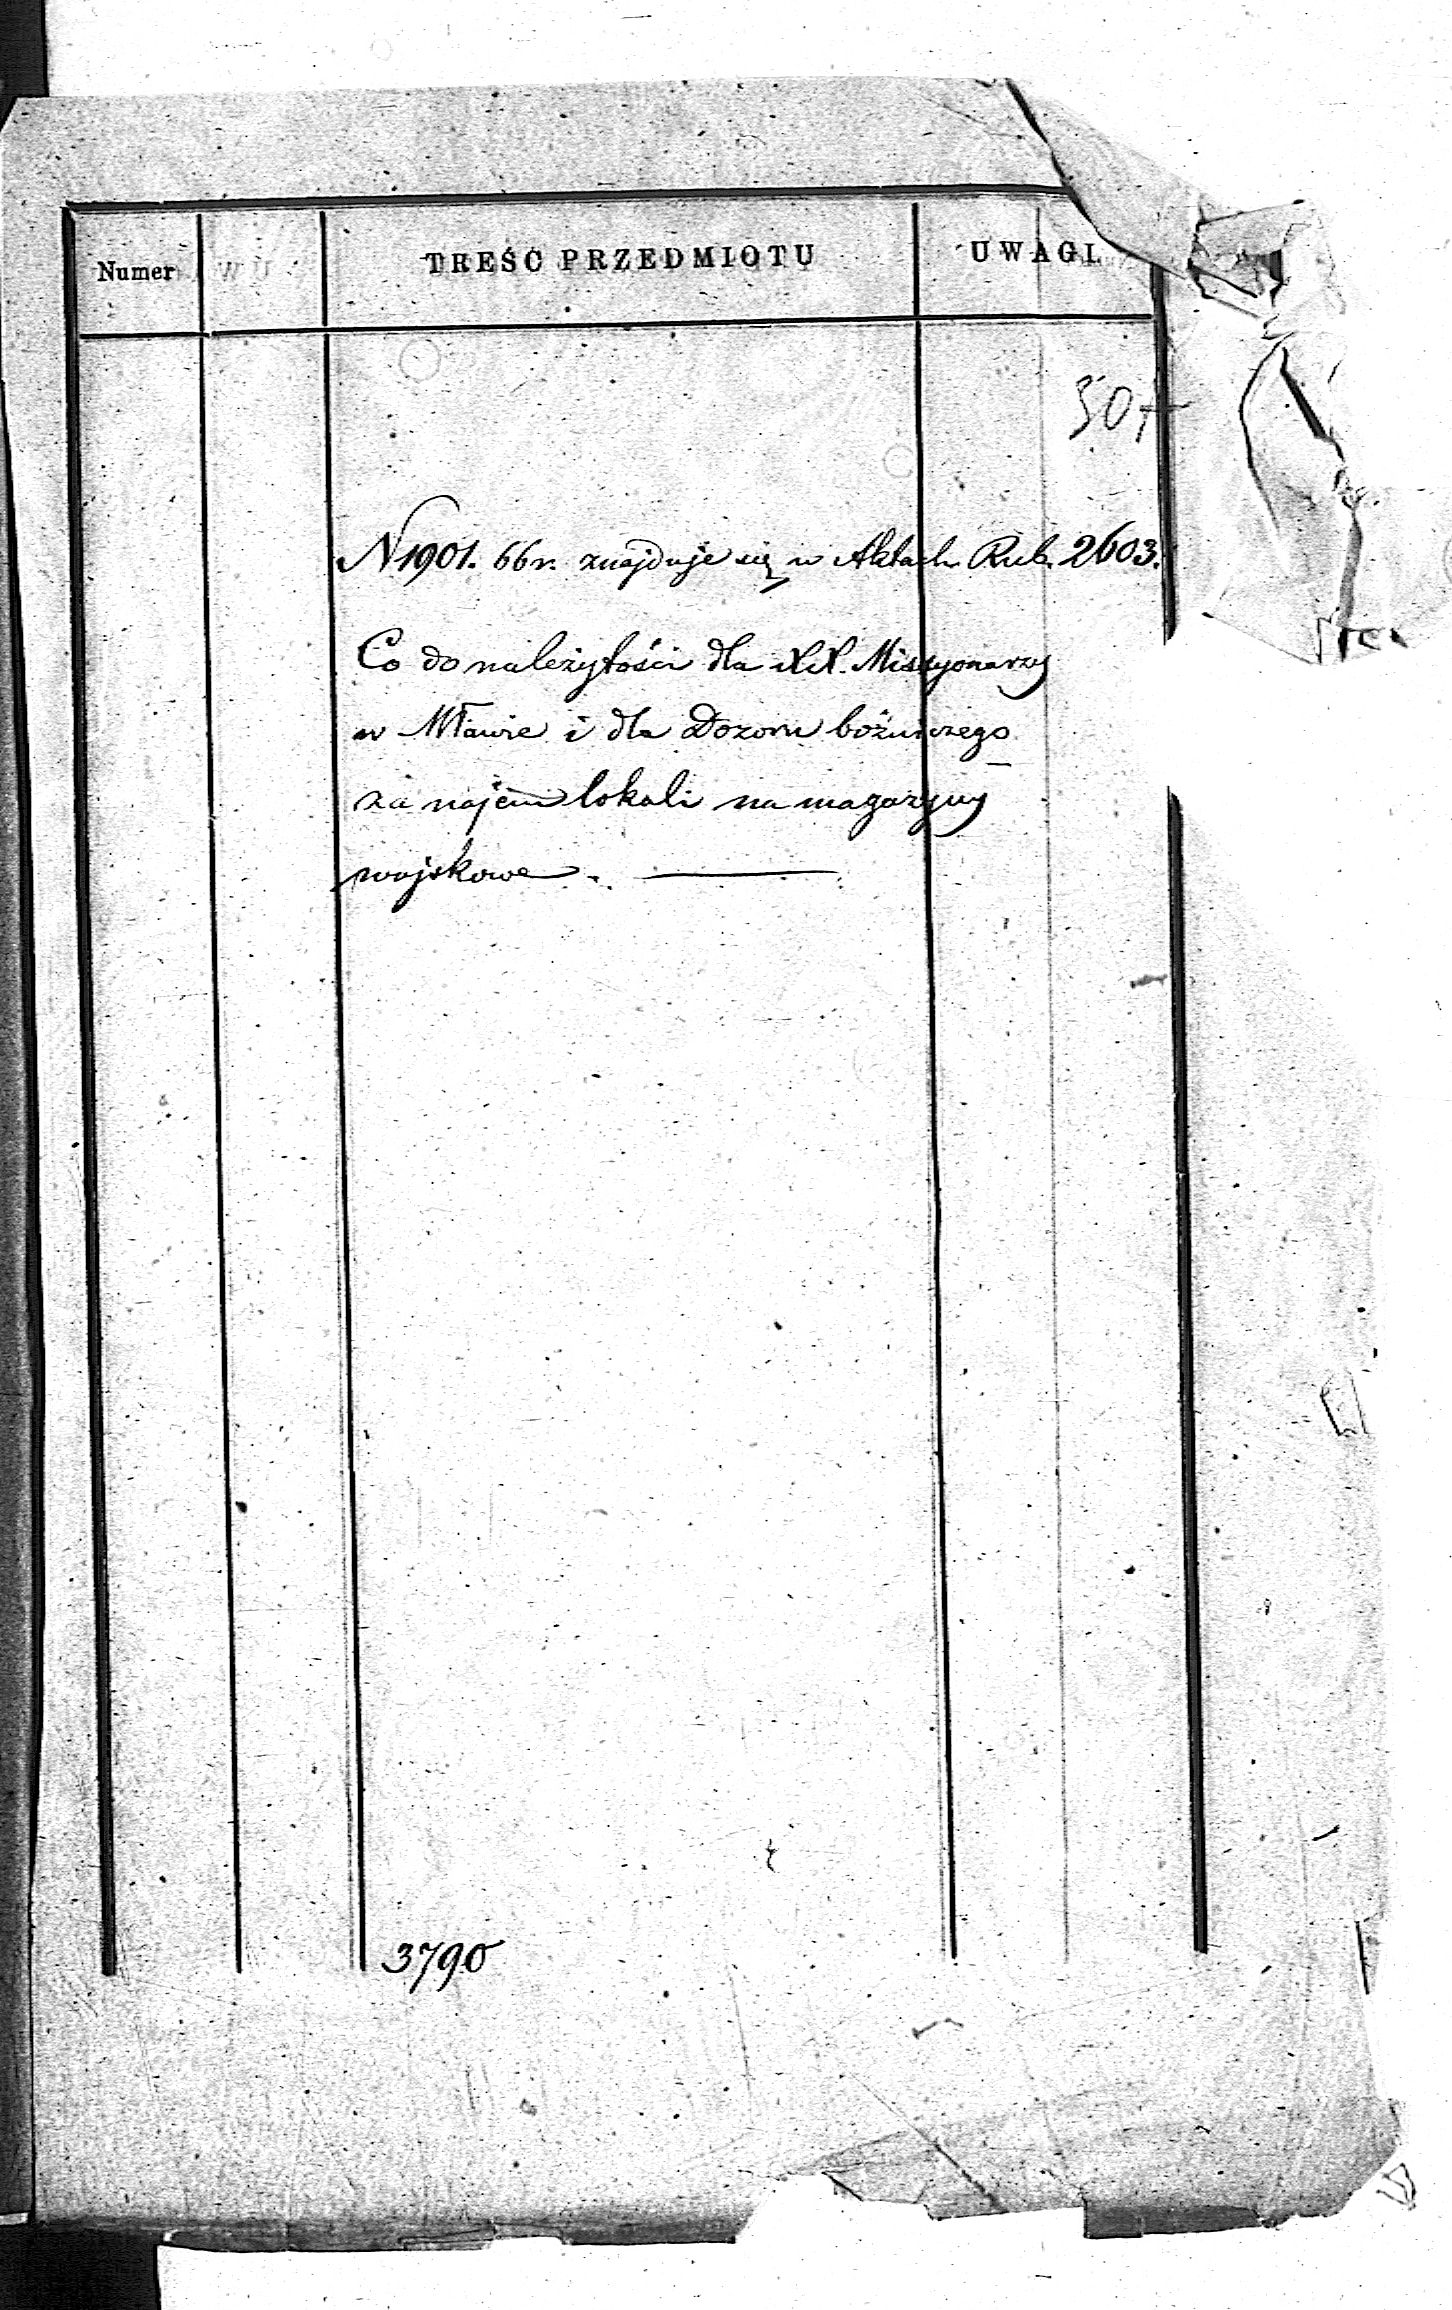 Numer TREŚĆ PRZEDMIOTU UWAGI.
N 1901. 66 r. znajduje się w Aktach Rub. 2603.
Co do należytości dla XX. Missyonarzy
w Mławie i dla Dozoru bóżniczego
za najem lokali na magazyny
wojskowe. —
3790